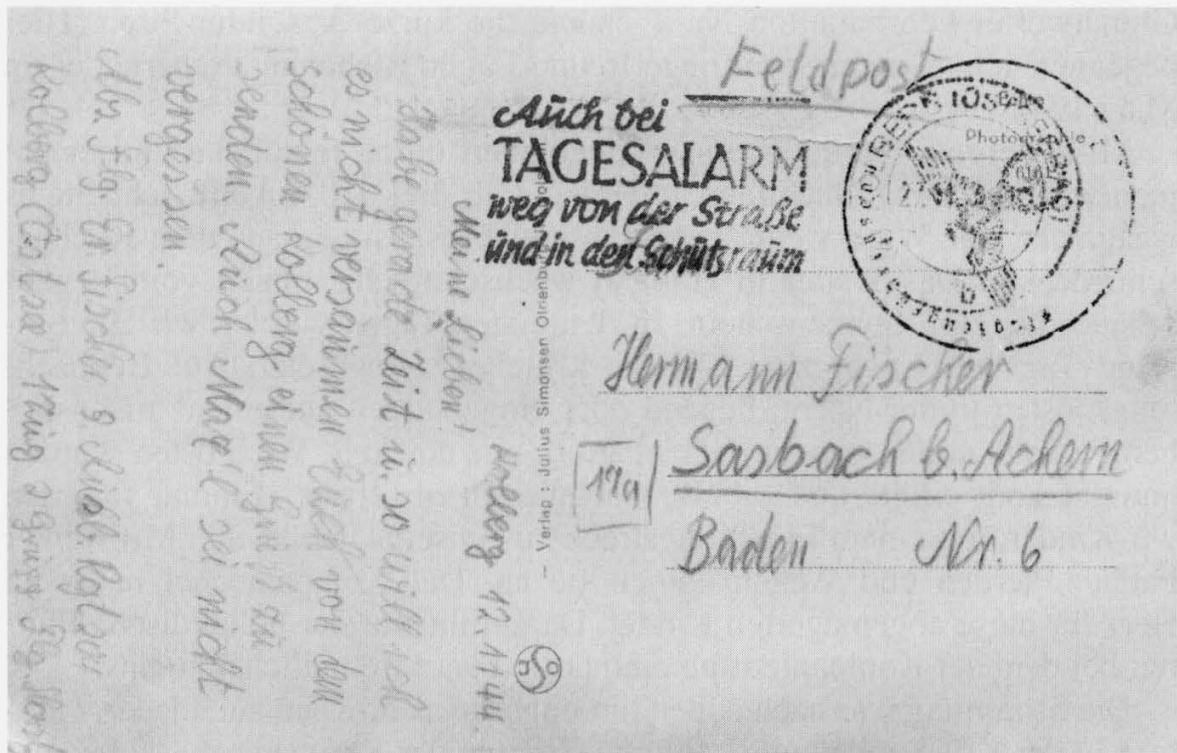 Feldpost
Auch bei
TAGESALARM
weg von der Straße
und in den Schutzraum
Photographie
Hermann Fischer
17a
Sasbach b. Achern
Baden Nr. 6
– Verlag: Julius Simonsen
Kolberg 12.11.44.
Meine Lieben!
Habe gerade Zeit u. so will ich
es nicht versäumen Euch von dem
schönen Kolberg einen Gruß zu
senden. Auch Mag'l sei nicht
vergessen.
Fischer 9.
Kolberg (Ostsee) 1 Zug 2 Grupp